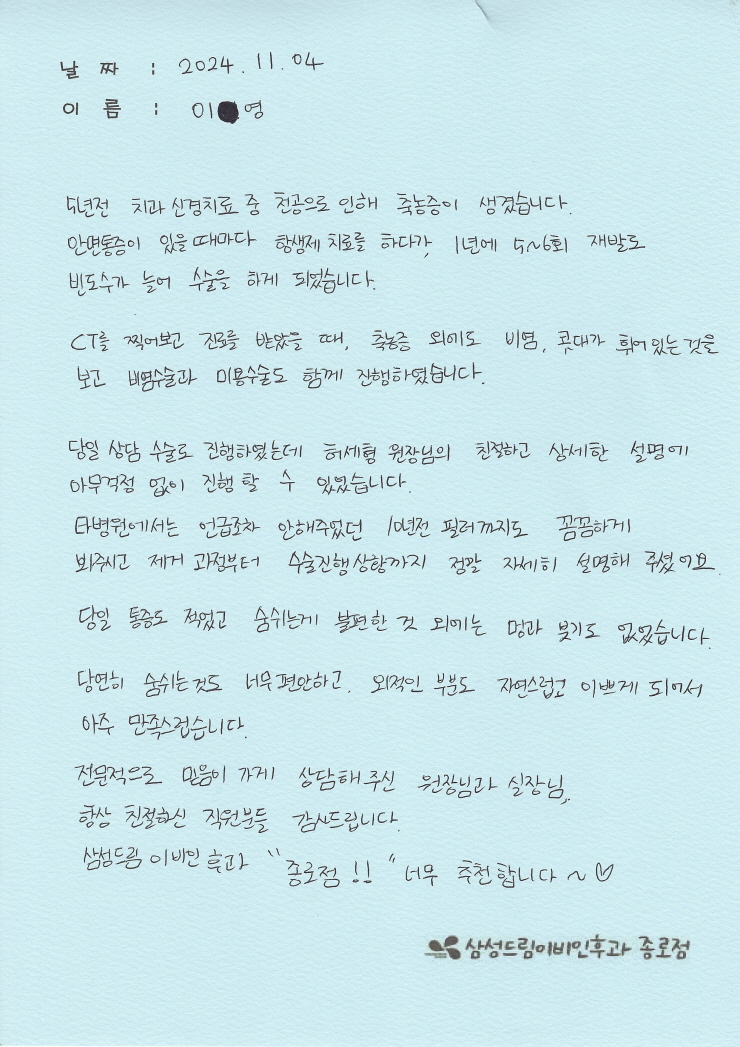 날 짜 : 2024. 11. 04
이 름 : 이 영
5년전 치과 신경치료 중 천공으로 인해 축농증이 생겼습니다.
안면통증이 있을때마다 항생제 치료를 하다가, 1년에 5~6회 재발도
빈도수가 늘어 수술을 하게 되었습니다.
CT를 찍어보고 진료를 받았을 때, 축농증 외에도 비염, 콧대가 휘어있는것을
보고 비염수술과 미용수술도 함께 진행하였습니다.
당일 상담 수술로 진행하였는데 허세형 원장님의 친절하고 상세한 설명에
아무걱정 없이 진행 할 수 있었습니다.
타병원에서는 언급조차 안해주었던 10년전 필러까지도 꼼꼼하게
봐주시고 제거 과정부터 수술진행상황까지 정말 자세히 설명해 주셨어요.
당일 통증도 적었고 숨쉬는게 불편한 것 외에는 멍과 붓기도 없었습니다.
당연히 숨쉬는것도 너무편안하고, 외적인 부분도 자연스럽고 이쁘게 되어서
아주 만족스럽습니다.
전문적으로 믿음이 가게 상담해주신 원장님과 실장님,
항상 친절하신 직원분들 감사드립니다.
삼성드림이비인후과 "종로점!!" 너무 추천합니다~♡
삼성드림이비인후과 종로점